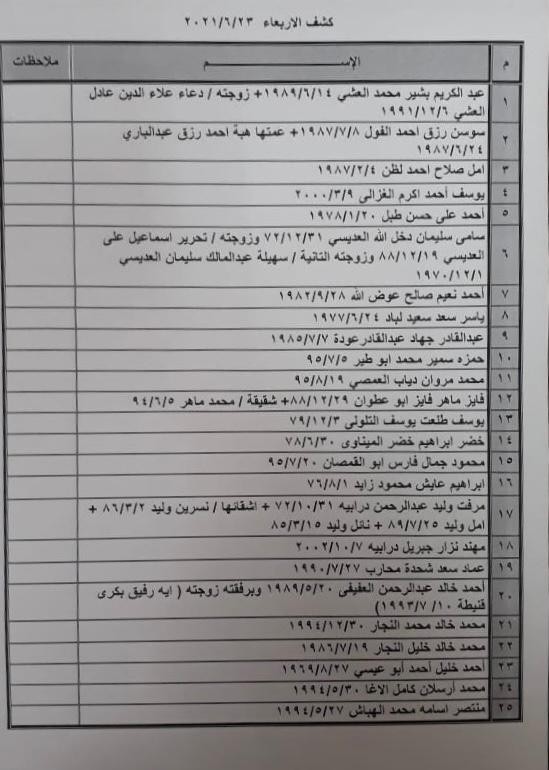 كشف الاربعاء ٢٠٢١/٦/٢٣
م الإســـــــــم ملاحظات
١ عبد الكريم بشير محمد العشي ١٩٨٩/٦/١٤+ زوجته / دعاء علاء الدين عادل
العشي ١٩٩١/١٢/٦
٢ سوسن رزق احمد الفول ١٩٨٧/٧/٨+ عمتها هبة احمد رزق عبدالباري
١٩٨٧/٦/٢٤
٣ امل صلاح احمد لظن ١٩٨٧/٢/٤
٤ يوسف أحمد اكرم الغزالي ٢٠٠٠/٣/٩
٥ أحمد على حسن طبل ١٩٧٨/١/٢٠
٦ سامى سليمان دخل الله العديسي ٧٢/١٢/٣١ وزوجته / تحرير اسماعيل على
العديسي ٨٨/١٢/١٩ وزوجته الثانية / سهيلة عبدالمالك سليمان العديسي
١٩٧٠/١٢/١
٧ أحمد نعيم صالح عوض الله ١٩٨٢/٩/٢٨
٨ ياسر سعد سعيد لباد ١٩٧٧/٦/٢٤
٩ عبدالقادر جهاد عبدالقادرعودة ١٩٨٥/٧/٧
١٠ حمزه سمير محمد ابو طير ٩٥/٧/٥
١١ محمد مروان دياب العمصي ٩٥/٨/١٩
١٢ فايز ماهر فايز ابو عطوان ٨٨/١٢/٢٩+ شقيقة / محمد ماهر ٩٤/٦/٥
١٣ يوسف طلعت يوسف التلولى ٧٩/١٢/٣
١٤ خضر ابراهيم خضر الميناوى ٧٨/٦/٣٠
١٥ محمود جمال فارس ابو القمصان ٩٥/٧/٢٠
١٦ ابراهيم عايش محمود زايد ٧٦/٨/١
١٧ مرفت وليد عبدالرحمن درابيه ٧٢/١٠/٣١ + اشقائها / نسرين وليد ٨٦/٣/٢ +
امل وليد ٨٩/٧/٢٥ + نائل وليد ٨٥/٣/١٥
١٨ مهند نزار جبريل درابيه ٢٠٠٢/١٠/٧
١٩ عماد سعد شحدة محارب ١٩٩٠/٧/٢٧
٢٠ أحمد خالد عبدالرحمن العفيفى ١٩٨٩/٥/٢٠ وبرفقته زوجته ( ايه رفيق بكرى
قنيطة ١٠ /١٩٩٣/٧)
٢١ محمد خالد محمد النجار ١٩٩٤/١٢/٣٠
٢٢ محمد خالد خليل النجار ١٩٨٦/٧/١٩
٢٣ أحمد خليل أحمد أبو عيسي ١٩٦٩/٨/٢٧
٢٤ محمد أرسلان كامل الاغا ١٩٩٤/٥/٣٠
٢٥ منتصر اسامه محمد الهباش ١٩٩٤/٥/٢٧